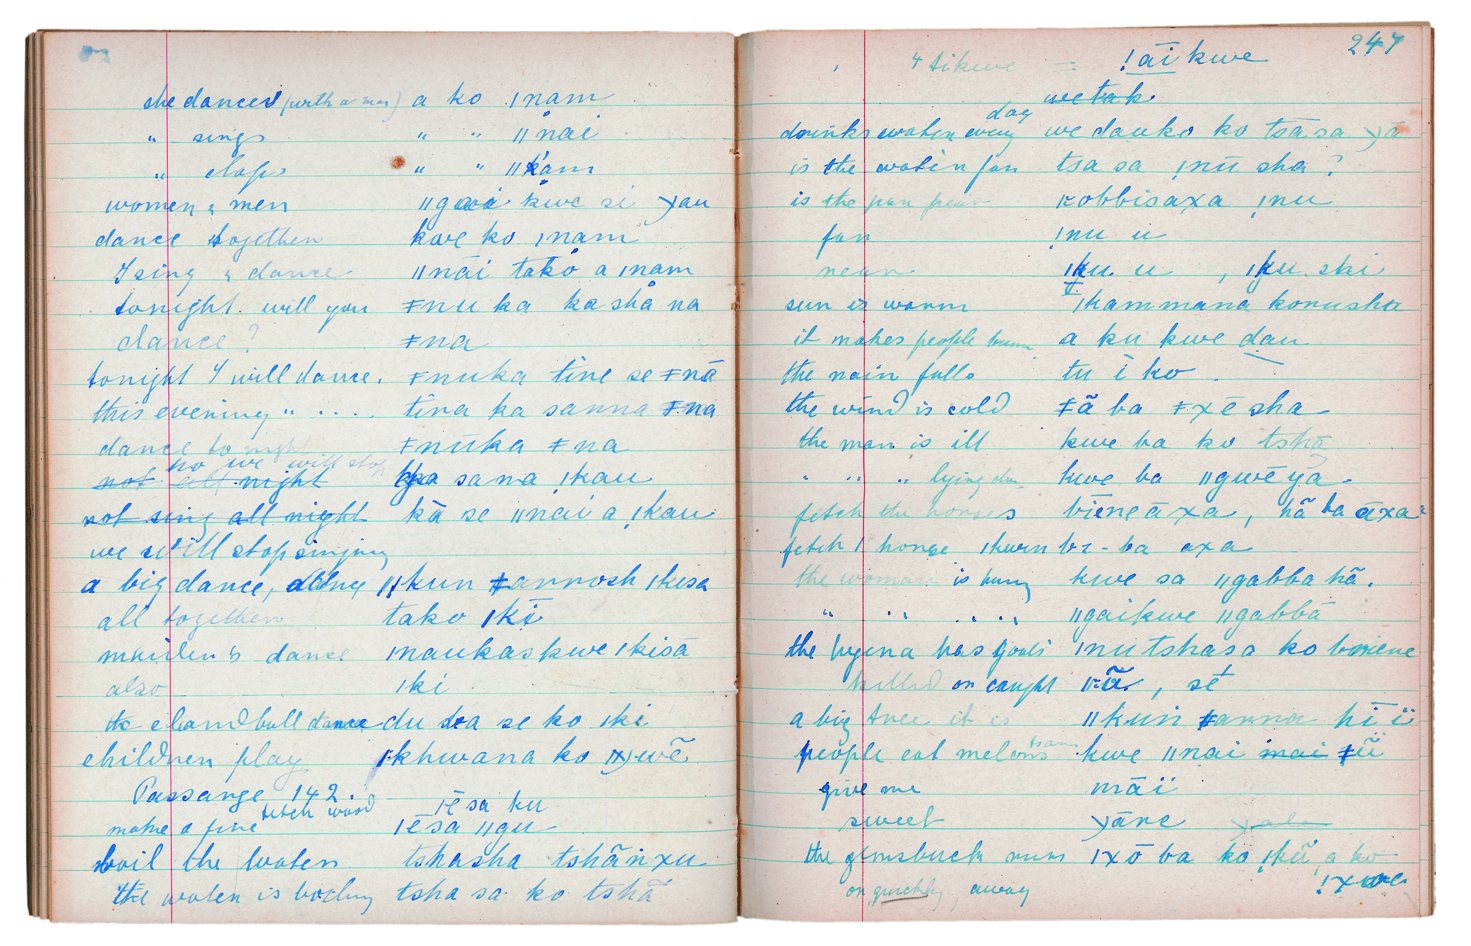 she dances (with a man) a ko ǀnam
" sings " " ǁnai
" claps " " ǁkam
women & men ǁgai kwe si yau
dance together kwe ko ǀnam
I sing & dance ǁnāi tako a ǀnam
tonight will you ǂnu ka ka sha na
dance? ǂna
tonight I will dance. ǂnuka tine se ǂnā
this evening " .... tina ka sanna ǂna
dance to night ǂnuka ǂna
no we will stop
not all night sana ǀkau
not sing all night kā se ǁnai a ǀkau
we will stop singing
a big dance, along ǁkun ǂannosh ǀkisa
all together tako ǀkī
maiden's dance ǀnaukaskwe ǀkisā
also ǀki
the eland bull dance du a se ko ǀki
children play ǀkhwana ko
Passarge 142.
fetch wood ǀēsa ku
make a fire ǀēsa ǁgu
boil the water tshasha tshānxu
the water is boiling tsha sa ko tshā
247
4 tikwe = !āi kwe
wetak
day
drinks water every we dauko ko tsāsa yā
is the water far tsa sa ǃnū sha?
is the pan near kobbisaxa ǃnu
far ǃnu u
near ǀku u , ǀku shi
sun is warm ǀkammana korusha
it makes people burn a ku kwe dau
the rain falls tu ī ko
the wind is cold ǂā ba ǂxē sha
the man is ill kwe ba ko tshō
" " " lying down kwe ba ǁgwē yā
fetch the horses bīene āxa, hā ba āxa
fetch 1 horse ǀkurn bi-ba axa
the woman is hung kwe sa ǁgabba hā.
" " .. .. ǁgaikwe ǁgabbā
the hyena has goats ǀnutshasa ko boriene
killed or caught , sē
a big tree it is ǁkuin ǂanna hī ī
people eat melons tsam kwe ǁnai mai ǂū
give me māīī
sweet yāre yale
the gemsbuck runs ǀxō ba ko ǀkū a ko
on quickly, away ǃxwe